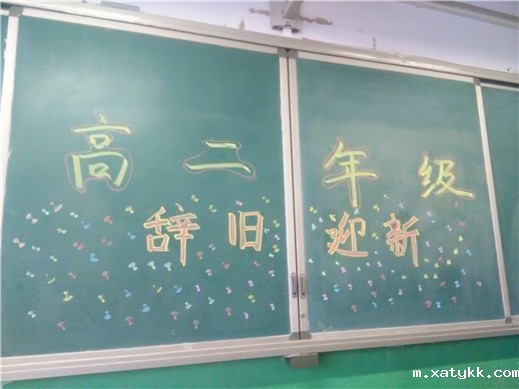 高二年级
辞旧迎新
m.xatykk.com